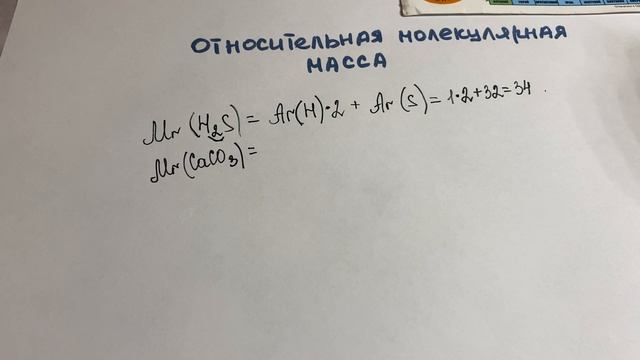 ОТНОСИТЕЛЬНАЯ МОЛЕКУЛЯРНАЯ
МАССА
Mr (H₂S) = Ar(H)·2 + Ar(S) = 1·2+32=34
Mr(CaCO₃)=